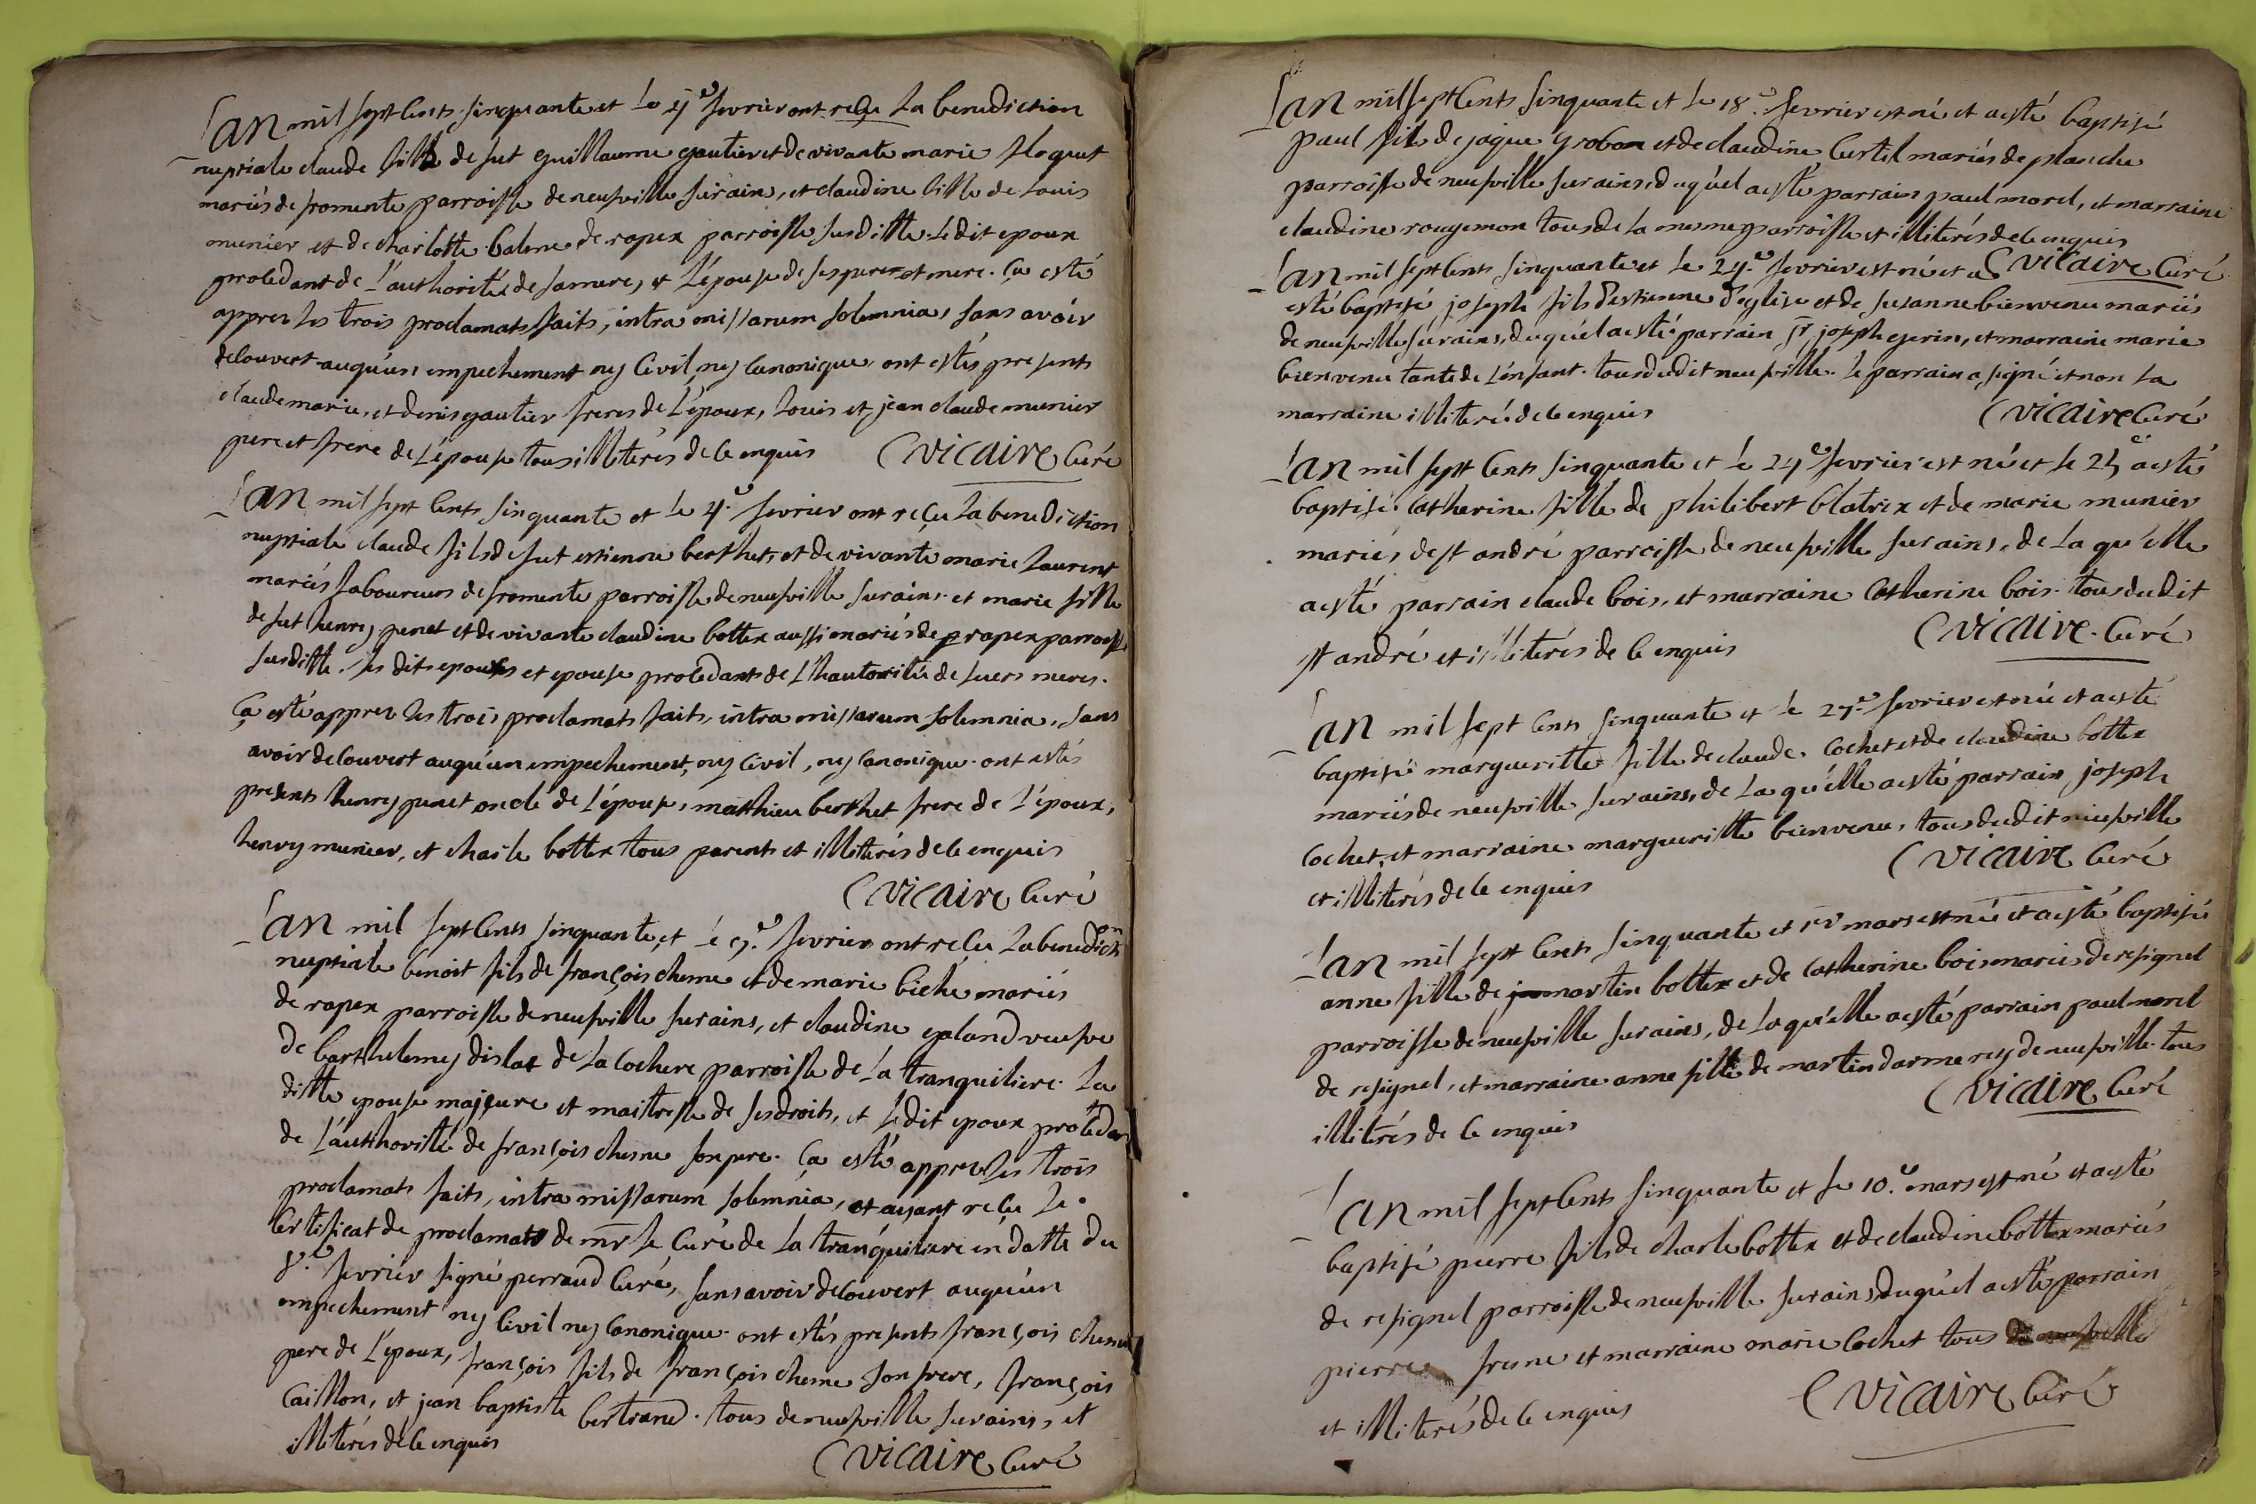 Lan mil sept cents sinquante et le 4e fevrier ont reçu la benediction
nuptiale claude fils de fut guillaume gautier et de vivante marie
mariés de fromente parroisse de neufville surains, et claudine fille de louis
munier et de charlotte balme de rapex parroisse susditte. ledit epoux
procedant de l'authorité de sa mere, et l'épouse de ses perre et mere. ça esté
apprez les trois proclamats faits, intra missarum solemnia, sans avoir
decouvert auqu'un empechement ny civil ny canonique. ont estés presents
claude marie, et denis gautier freres de l'époux, louis et jean claude munier
pere et frere de l'épouse tous illiterés de ce enquis Vicaire Curé
Lan mil sept cents sinquante et le 4e fevrier ont reçu la benediction
nuptiale claude fils de fut estienne berthet, et de vivante marie laurent
mariés laboureurs de fromente parroisse de neufville surains. et marie fille
de fut henry penet et de vivante claudine bottex aussi mariés de rapex parroisse
susditte. les dits epoux et epouse procedants de l'hautorité de luers meres.
ça esté apprez les trois proclamats faits, intra missarum solemnia, sans
avoir decouvert auqu'un empechement, ny civil, ny canonique. ont estés
presents henry penet oncle de l'épouse, matthieu berthet frere de l'époux,
henry munier, et charle bottex tous parents et illiterés de ce enquis
Vicaire Curé
Lan mil sept cents sinquante, et le 9e fevrier ont reçu la benedictn
nuptiale benoit fils de françois chesne et de marie biché mariés
de rapex parroisse de neufville surains, et claudine galand veufve
de barthelemy dislat de la cochere parroisse de la tranquiliere. la
ditte epouse majeure et maitresse de ses droits, et ledit epoux procedant
de l'authorité de françois chesne son pere. ça esté apprez les trois
proclamats faits, intra missarum solemnia, et ayant reçu le
certificat de proclamats de mr le Curé de la tranquiliere en datte du
8e fevrier signé perraud Curé, sans avoir decouvert auqu'un
empechement ny civil ny canonique. ont estés presents françois chesne
pere de l'époux, françois fils de françois chesne son frere, françois
caillon, et jean baptiste bertrand. tous de neufville surains, et
illiterés de ce enquis Vicaire Curé
Lan mil sept cents sinquante et le 18e fevrier est né et a esté baptisé
paul fils de jaque grobon et de claudine curtil mariés de planche
parroisse de neufville surains, duquel a esté parrain paul morel, et marraine
claudine rougemon tous de la mesme parroisse et illiterés de ce enquis
Vicaire Curé
Lan mil sept cents sinquante et le 24e fevrier est né et a
esté baptisé joseph fils d'estienne d'eglise et de susanne bienvenu mariés
de neufville surains, duquel a esté parrain sr joseph gerin, et marraine marie
bienvenu tante de l'enfant. tous dudit neufville. le parrain a signé et non la
marraine illiterée de ce enquis Vicaire Curé
Lan mil sept cents sinquante et le 24e fevrier est né et le 25e a esté
baptisé catherine fille de philibert blatrix et de marie munier
mariés, de st andré parroisse de neufville surains, de la qu'elle
a esté parrain claude bois, et marraine catherine bois. tous dudit
st andré et illiterés de ce enquis Vicaire. Curé
Lan mil sept cents sinquante et le 27e fevrier est née et a esté
baptisé margueritte fille de claude. cochet et de claudine bottex
mariés de neufville surains, de la qu'elle a esté parrain joseph
cochet, et marraine margueritte bienvenu, tous dudit neufville
et illiterés de ce enquis Vicaire Curé
Lan mil sept cents sinquante et 1er mars est née et a esté baptisée
anne fille de martin bottex et de catherine bois mariés de resignel
parroisse de neufville surains, de laqu'elle a esté parrain paul morel
de resignel, et marraine anne fille de martin darmerey de neufville. tous
illiterés de ce enquis Vicaire Curé
Lan mil sept cents sinquante et le 10e mars est né et a esté
baptisé pierre fils de charle bottex et de claudine bottex mariés
de resignel parroisse de neufville surains, duquel a esté parrain
pierre fresne et marraine marie cochet tous de neufville
et illiterés de ce enquis Vicaire Curé